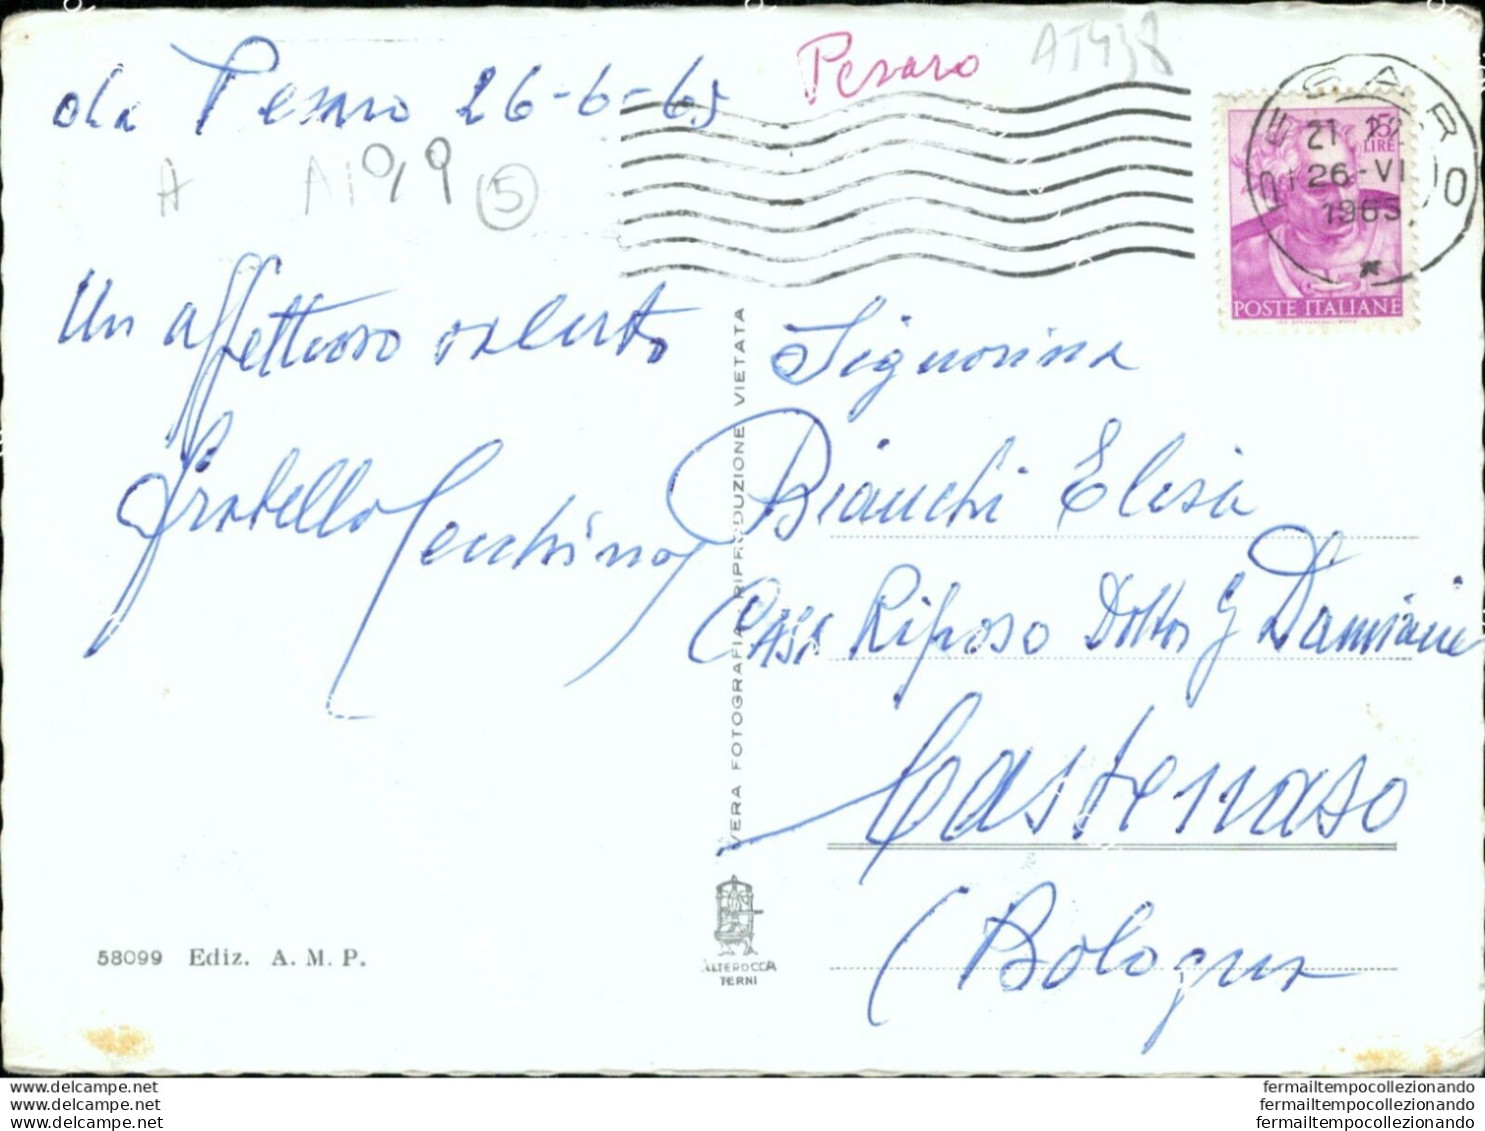 da Pesaro 26-6-65
Pesaro
AT438
A A1019 5
PESARO
21
26-VI
1965
LIRE
POSTE ITALIANE
Un affettuoso saluto
fratello Cecchino
Signorina
Bianchi Elisa
Casa Riposo Dottor G Damiani
Castenaso
(Bologna
VERA FOTOGRAFIA - RIPRODUZIONE VIETATA
58099 Ediz. A. M. P.
ALTEROCCA
TERNI
www.delcampe.net
www.delcampe.net
www.delcampe.net
fermailtempocollezionando
fermailtempocollezionando
fermailtempocollezionando